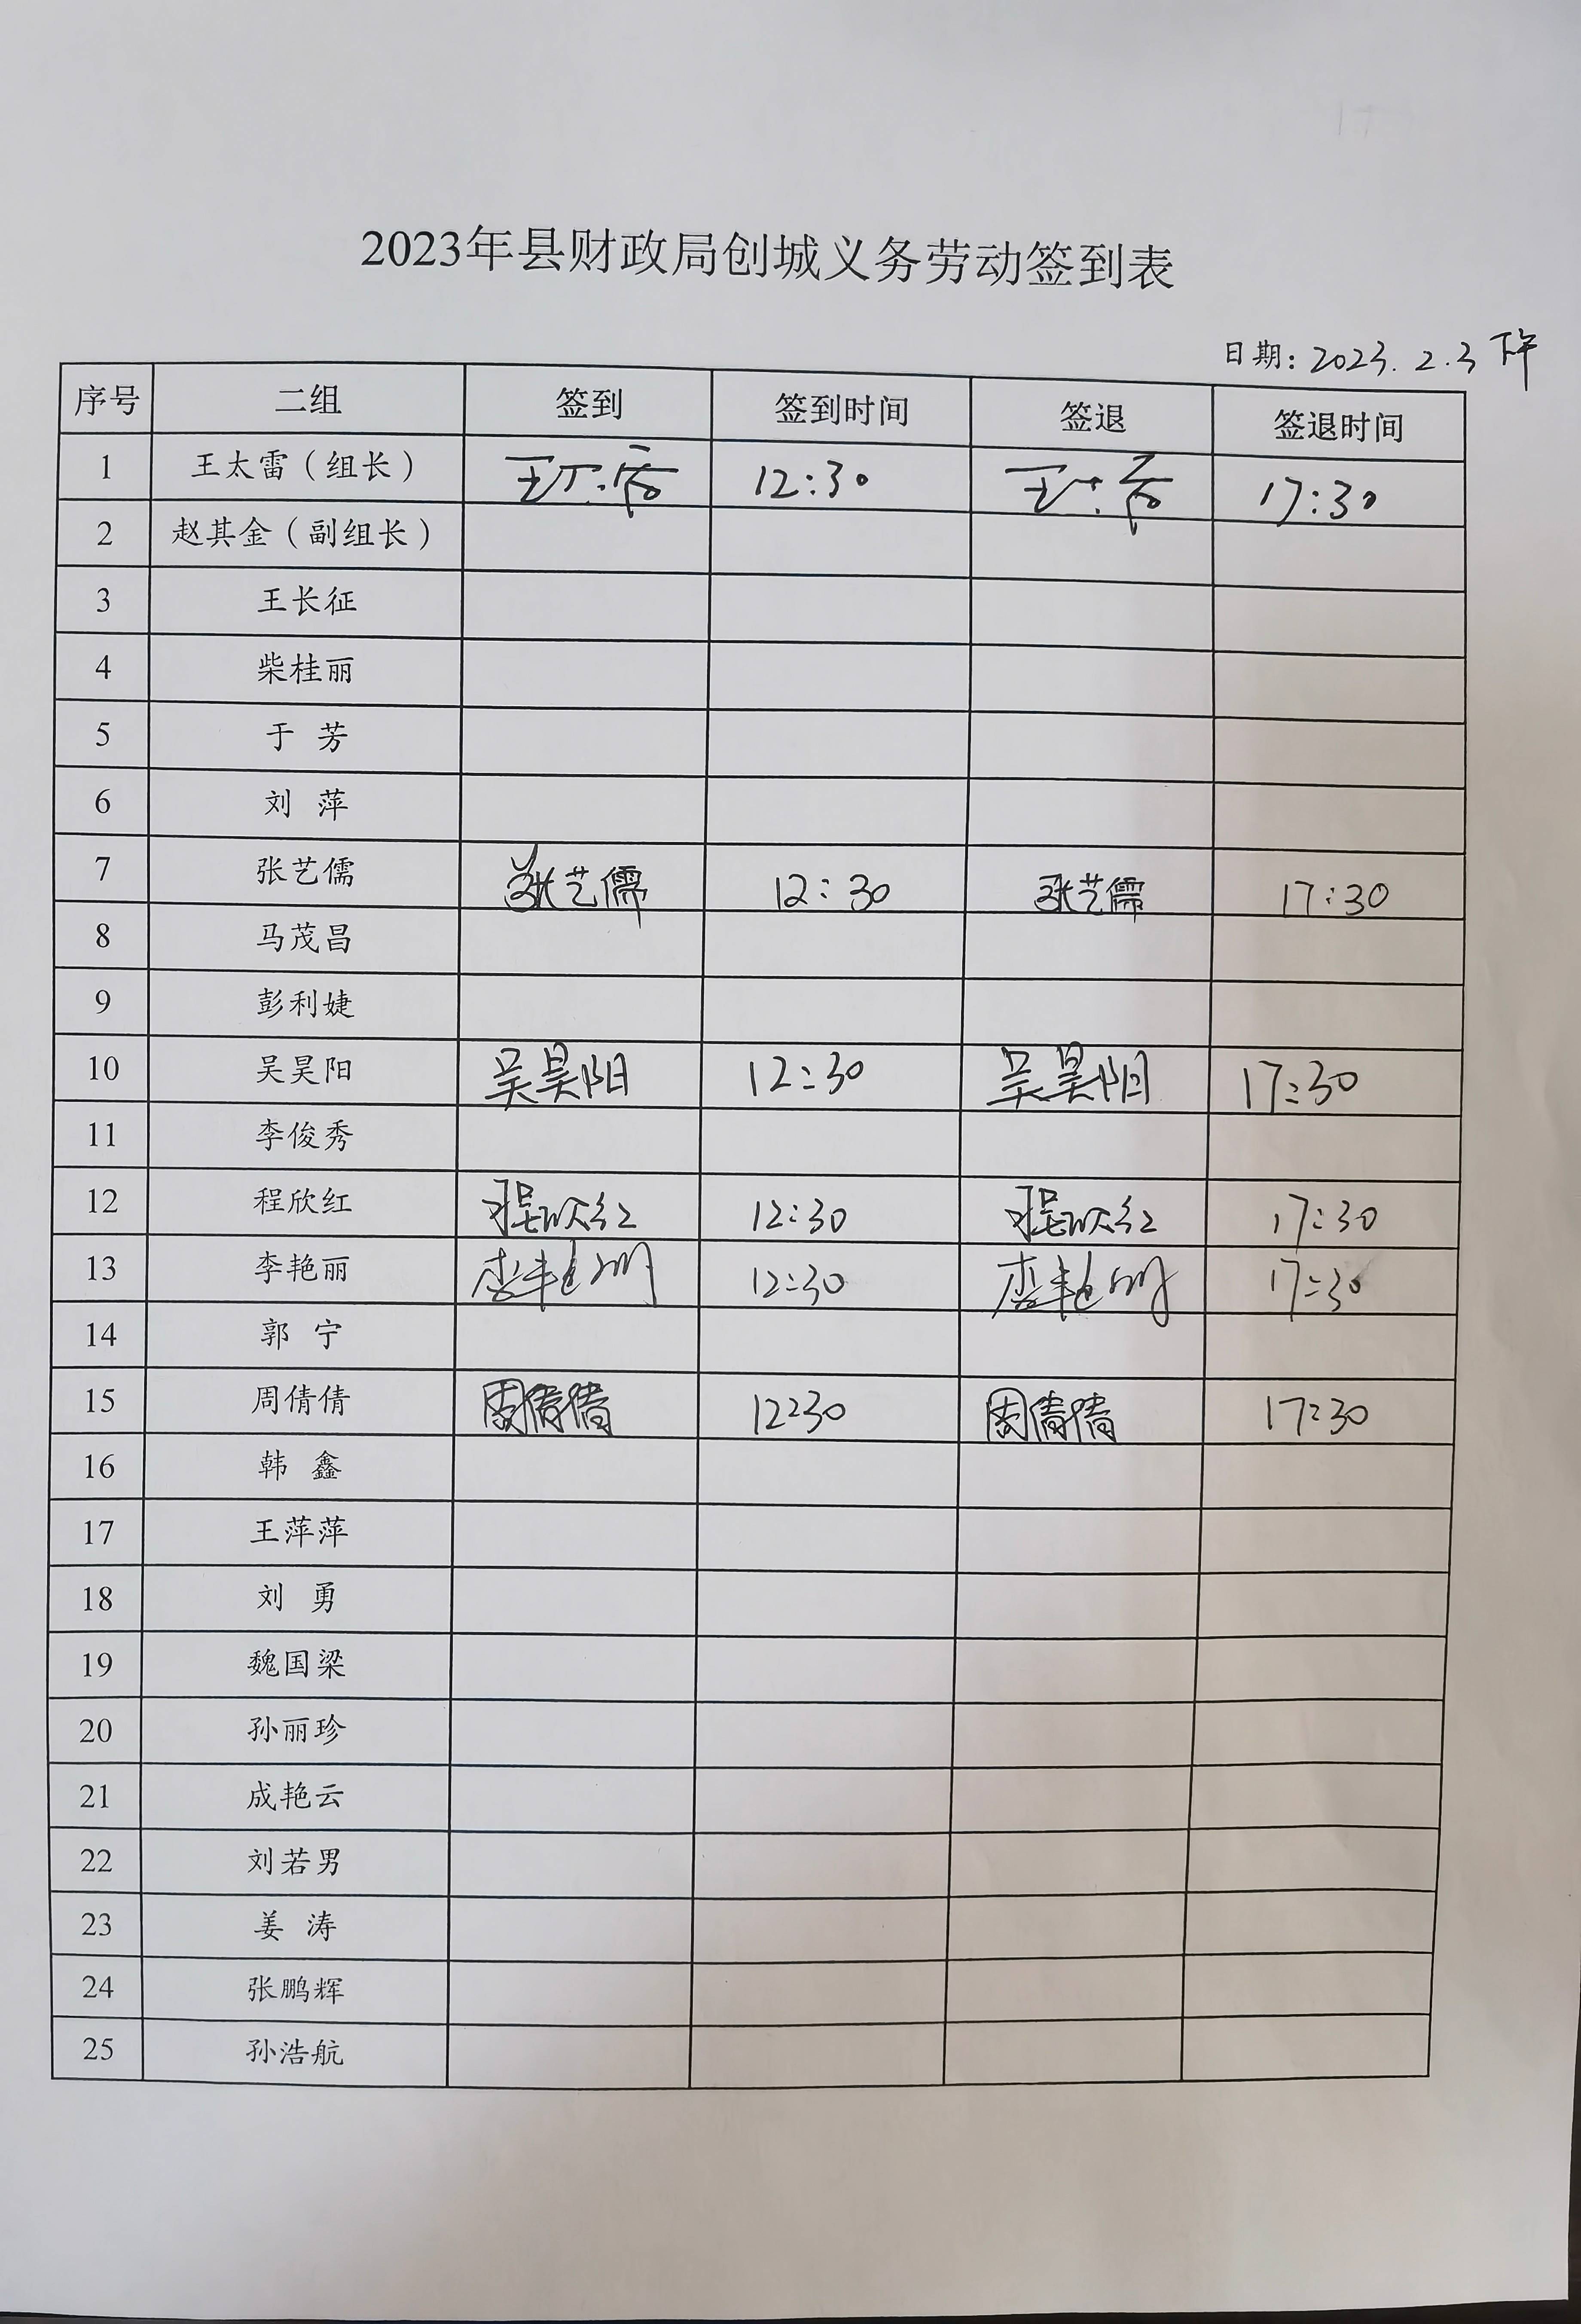 2023年县财政局创城义务劳动签到表
日期：2023.2.3 下午
序号 二组 签到 签到时间 签退 签退时间
1 王太雷（组长） 12:30 17:30
2 赵其金（副组长）
3 王长征
4 柴桂丽
5 于 芳
6 刘 萍
7 张艺儒 张艺儒 12:30 张艺儒 17:30
8 马茂昌
9 彭利婕
10 吴昊阳 吴昊阳 12:30 吴昊阳 17:30
11 李俊秀
12 程欣红 程欣红 12:30 程欣红 17:30
13 李艳丽 李艳丽 12:30 李艳丽 17:30
14 郭 宁
15 周倩倩 周倩倩 12:30 周倩倩 17:30
16 韩 鑫
17 王萍萍
18 刘 勇
19 魏国梁
20 孙丽珍
21 成艳云
22 刘若男
23 姜 涛
24 张鹏辉
25 孙浩航